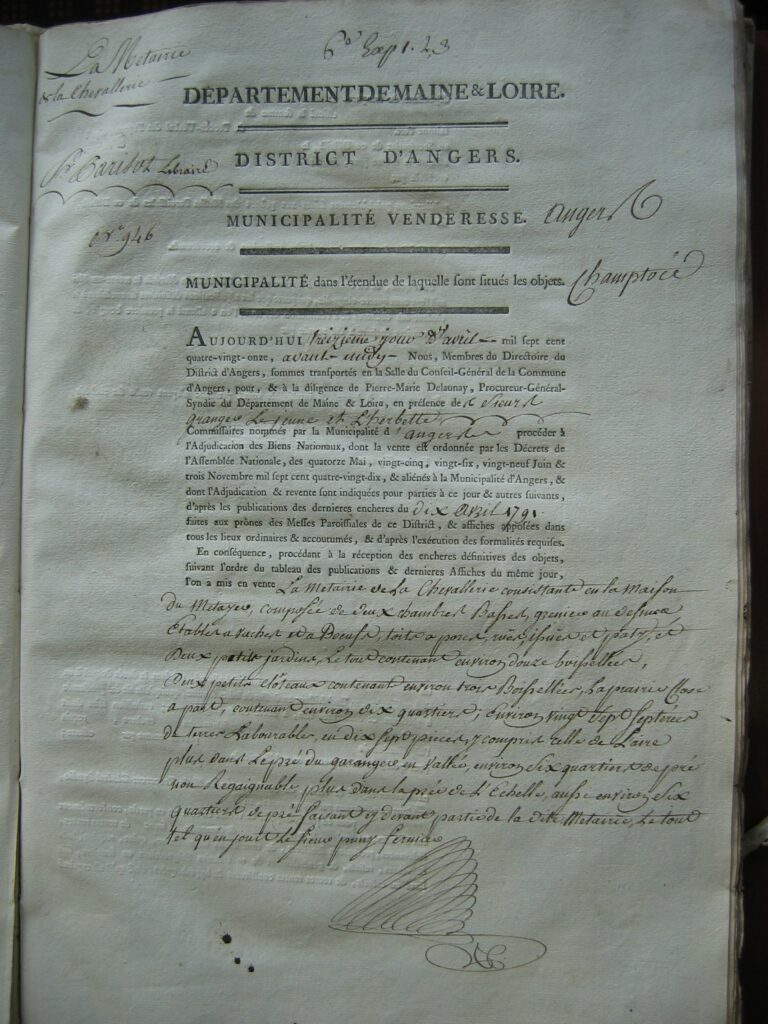 La Metairie
de la Chevallerie
DÉPARTEMENT DE MAINE & LOIRE.
Parisot Libraire
DISTRICT D'ANGERS.
N.° 946
MUNICIPALITÉ VENDERESSE. Angers
MUNICIPALITÉ dans l'étendue de laquelle sont situés les objets. Champtocé
AUJOURD'HUI treizième jour d'avril mil sept cent
quatre-vingt-onze, avant midy Nous, Membres du Directoire du
District d'Angers, sommes transportés en la Salle du Conseil-Général de la Commune
d'Angers, pour, & à la diligence de Pierre-Marie Delaunay, Procureur-Général-
Syndic du Département de Maine & Loire, en présence des Sieurs
Granger Le jeune et L'herbette
Commissaires nommés par la Municipalité d'angers procéder à
l'Adjudication des Biens Nationaux, dont la vente est ordonnée par les Décrets de
l'Assemblée Nationale, des quatorze Mai, vingt-cinq, vingt-six, vingt-neuf Juin &
trois Novembre mil sept cent quatre-vingt-dix, & aliénés à la Municipalité d'Angers, &
dont l'Adjudication & revente sont indiquées pour parties à ce jour & autres suivants,
d'après les publications des dernieres encheres du dix avril 1791.
faites aux prônes des Messes Paroissiales de ce District, & affiches apposées dans
tous les lieux ordinaires & accoutumés, & d'après l'exécution des formalités requises.
En conséquence, procédant à la réception des encheres définitives des objets,
suivant l'ordre du tableau des publications & dernieres Affiches du même jour,
l'on a mis en vente La Metairie de La Chevallerie consistante en la maison
du Metayer, composée de deux chambres Basses, grenier au dessus
Etables a vaches et a Boeufs, toits a porcs, rües, issües et
Deux petits jardins, Le tout contenant environ douze boisselées,
Deux petits clôteaux contenant environ trois Boisselées, La prairie Close
a part, contenant environ dix quartiers, environ vingt sept septerées
de terres Labourables, en dix sept pieces, y compris celle de L'aire
plus dans Le pré du garanger en vallée, environ six quartiers de pré
non Regaignable plus dans la prée de L'Echelle, aussi environ six
quartiers de pré faisant cy devant partie de la dite Metairie, Le tout
tel qu'en jouit Le sieur fermier